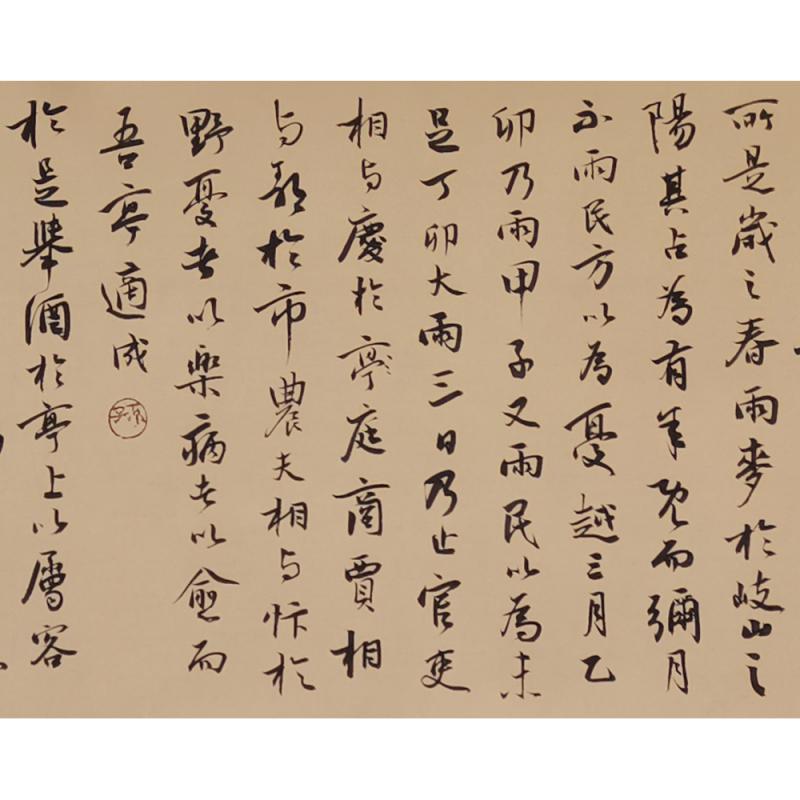 所是歲之春雨麥於岐山之
陽其占為有年既而彌月
不雨民方以為憂越三月乙
卯乃雨甲子又雨民以為未
足丁卯大雨三日乃止官吏
相与慶於亭庭商賈相
与歌於市農夫相与忭於
野憂者以樂病者以愈而
吾亭適成
於是舉酒於亭上以屬客